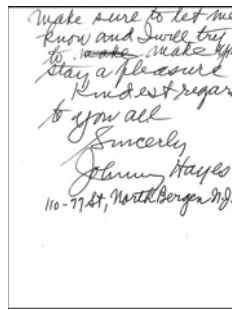 make sure to let me
know and I will try
to make make
stay a pleasure
Kindest regar
to you all
Sincerly
Johnny Hayes
110-77 St, North Bergen N.J.